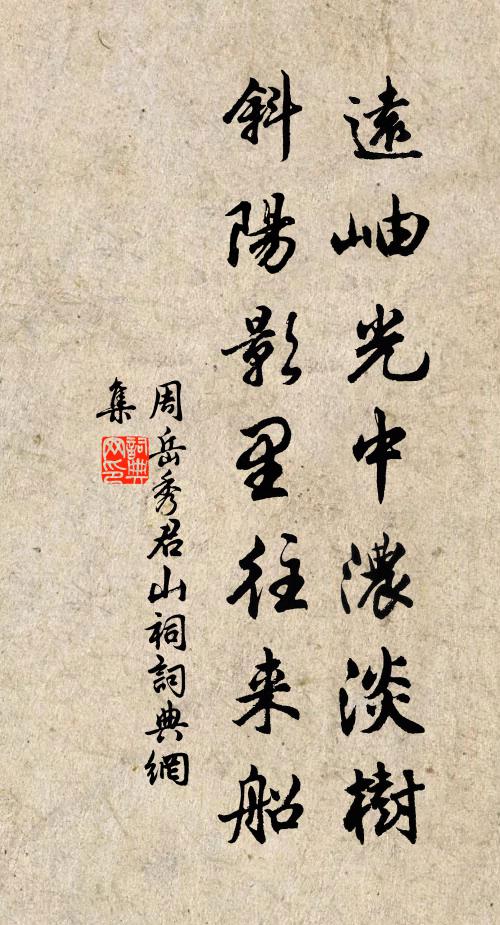 遠岫光中濃淡樹
斜陽影里往来船
周岳秀君山祠詞典網
集
詞典网印